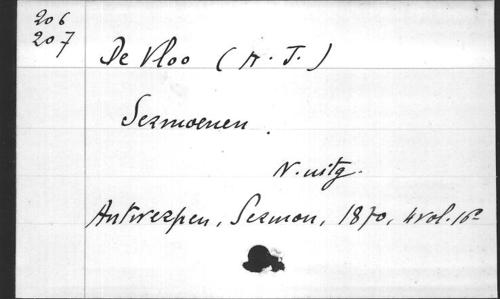 206
207
De Vloo (A. J.)
Sermoenen.
N. uitg.
Antwerpen, Sermon, 1870, 4 vol. 16°